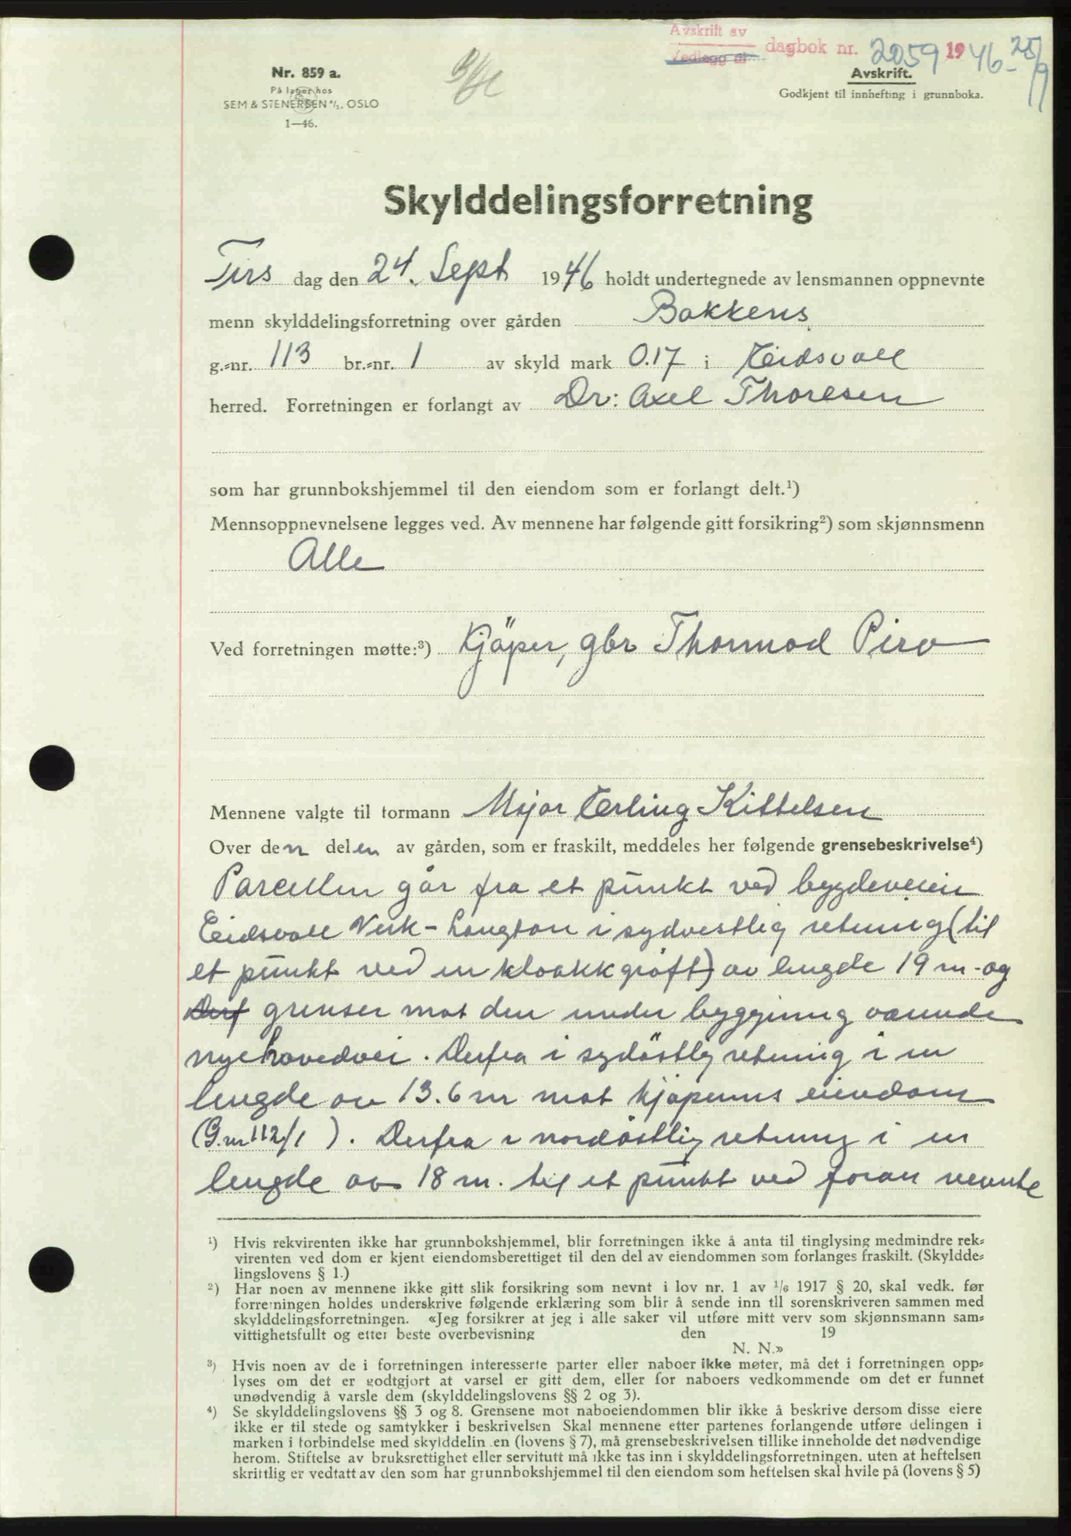 Avskrift av
Vedlegg til dagbok nr. 2059 1946 - 25/9
Nr. 859 a.
På lager hos
SEM & STENERSEN A/S, OSLO
1—46.
Avskrift.
Godkjent til innhefting i grunnboka.
Skylddelingsforretning
Tirs dag den 24. Sept 1946 holdt undertegnede av lensmannen oppnevnte
menn skylddelingsforretning over gården Bakkens
g.-nr. 113 br.-nr. 1 av skyld mark 0.17 i Eidsvoll
herred. Forretningen er forlangt av Dr: Axel Thoresen
som har grunnbokshjemmel til den eiendom som er forlangt delt.¹)
Mennsoppnevnelsene legges ved. Av mennene har følgende gitt forsikring²) som skjønnsmenn
Alle
Ved forretningen møtte:³) Kjöper, gbr Thormod Piro
Mennene valgte til formann Major Erling Kittelsen
Over den delen av gården, som er fraskilt, meddeles her følgende grensebeskrivelse⁴)
Parcellen går fra et punkt ved bygdeveien
Eidsvoll Verk - Langton i sydvestlig retning (til
et punkt ved en kloakkgrøft) av lengde 19 m - og
Derf grenser mot den under bygging værende
nye hovedvei. Derfra i sydöstlig retning i en
lengde av 13.6 m mot kjøperens eiendom
(G.nr 112/1). Derfra i nordöstlig retning i en
lengde av 18 m. til et punkt ved foran nevnte
¹) Hvis rekvirenten ikke har grunnbokshjemmel, blir forretningen ikke å anta til tinglysing medmindre rek-
virenten ved dom er kjent eiendomsberettiget til den del av eiendommen som forlanges fraskilt. (Skyldde-
lingslovens § 1.)
²) Har noen av mennene ikke gitt slik forsikring som nevnt i lov nr. 1 av 1/6 1917 § 20, skal vedk. før
forretningen holdes underskrive følgende erklæring som blir å sende inn til sorenskriveren sammen med
skylddelingsforretningen. «Jeg forsikrer at jeg i alle saker vil utføre mitt verv som skjønnsmann sam-
vittighetsfullt og etter beste overbevisning den 19
N. N.»
³) Hvis noen av de i forretningen interesserte parter eller naboer ikke møter, må det i forretningen opp-
lyses om det er godtgjort at varsel er gitt dem, eller for naboers vedkommende om det er funnet
unødvendig å varsle dem (skylddelingslovens §§ 2 og 3).
⁴) Se skylddelingslovens §§ 3 og 8. Grensene mot naboeiendommen blir ikke å beskrive dersom disse eiere
ikke er til stede og samtykker i beskrivelsen Skal mennene etter partenes forlangende utføre delingen i
marken i forbindelse med skylddelin en (lovens § 7), må grensebeskrivelsen tillike inneholde det nødvendige
herom. Stiftelse av bruksrettighet eller servitutt må ikke tas inn i skylddelingsforretningen. uten at heftelsen
skriftlig er vedtatt av den som har grunnbokshjemmel til den eiendom som heftelsen skal hvile på (lovens § 5)